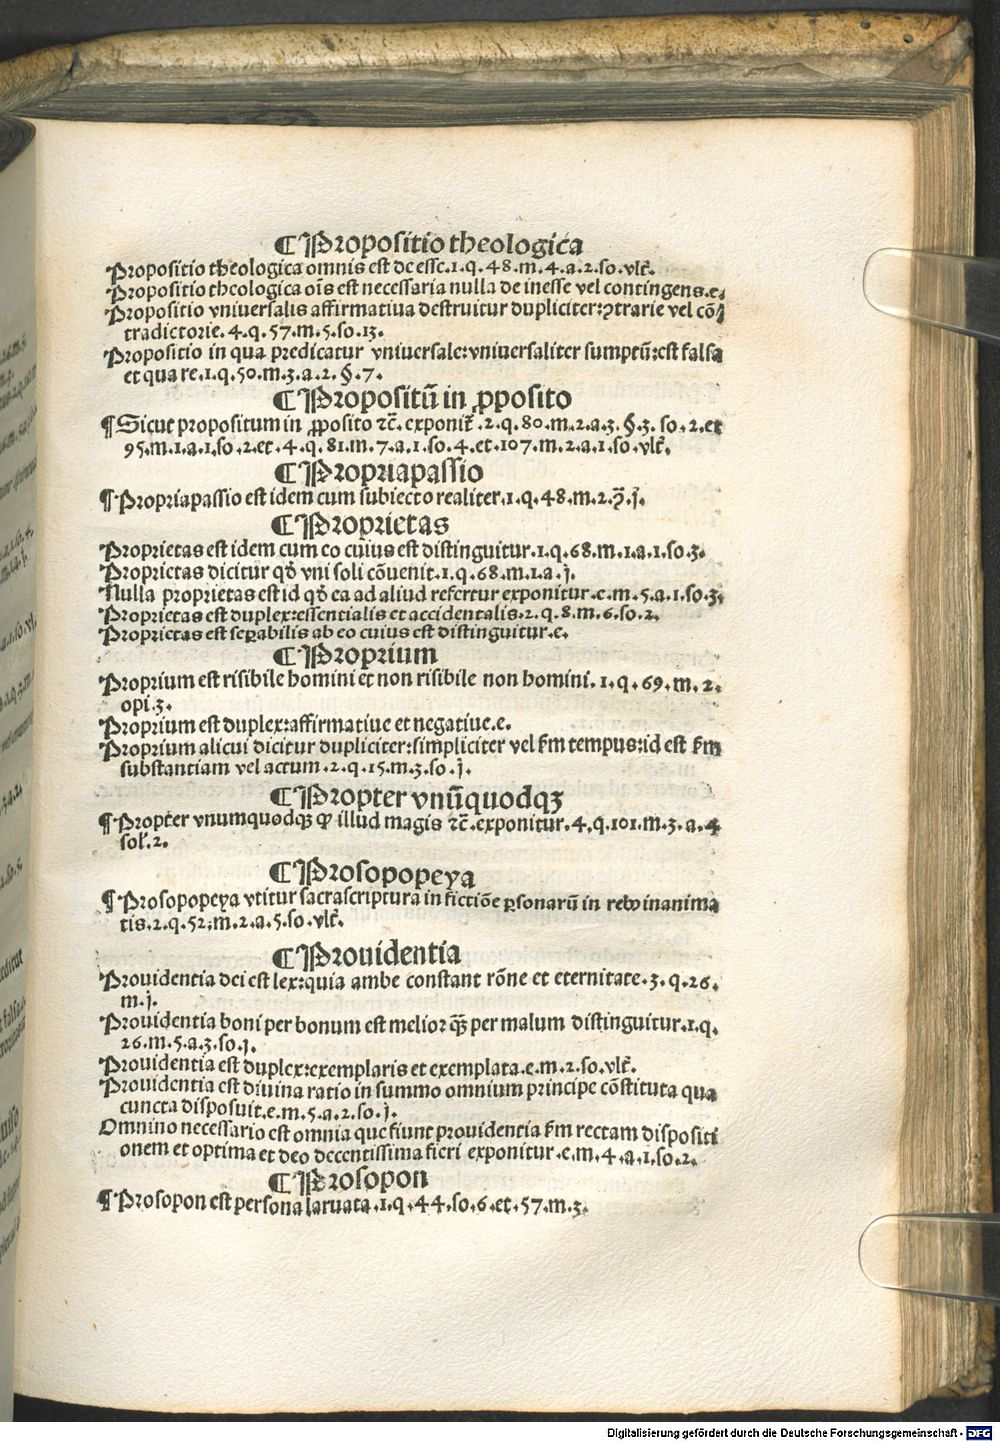 ¶Propositio theologica
Propositio theologica omnis est de esse.1.q.48.m.4.a.2.so.vlt̃.
Propositio theologica oĩs est necessaria nulla de inesse vel contingens.e.
Propositio vniuersalis affirmatiua destruitur dupliciter:ꝯtrarie vel cõ/
tradictorie.4.q.57.m.5.so.13.
Propositio in qua predicatur vniuersale:vniuersaliter sumptũ:est falsa
et quare.1.q.50.m.3.a.2.§.7.
¶Propositũ in ꝓposito
¶Sicut propositum in ꝓposito ⁊c̃. exponit̃.2.q.80.m.2.a.3.§.3.so.2.et
95.m.1.a.1.so.2.et.4.q.81.m.7.a.1.so.4.et.107.m.2.a.1.so.vlt̃.
¶Propriapassio
¶Propriapassio est idem cum subiecto realiter.1.q.48.m.2.ꝯ̃.j.
¶Proprietas
Proprietas est idem cum eo cuius est distinguitur.1.q.68.m.1.a.1.so.3.
Proprietas dicitur qđ vni soli cõuenit.1.q.68.m.1.a.j.
Nulla proprietas est id qđ ea ad aliud refertur exponitur.e.m.5.a.1.so.3.
Proprietas est duplex:essentialis et accidentalis.2.q.8.m.6.so.2.
Proprietas est seꝑabilis ab eo cuius est distinguitur.e.
¶Proprium
Proprium est risibile homini et non risibile non homini.1.q.69.m.2.
opi.3.
Proprium est duplex:affirmatiue et negatiue.e.
Proprium alicui dicitur dupliciter:simpliciter vel fm tempus:id est fm
substantiam vel actum.2.q.15.m.3.so.j.
¶Propter vnũquodqꝫ
¶Propter vnumquodqꝫ ꝙ illud magis ⁊c̃.exponitur.4.q.101.m.3.a.4
sol̃.2.
¶Prosopopeya
¶Prosopopeya vtitur sacrascriptura in fictiõe ꝑsonarũ in rebꝰ inanima
tis.2.q.52.m.2.a.5.so.vlt̃.
¶Prouidentia
Prouidentia dei est lex:quia ambe constant rõne et eternitate.3.q.26.
m.j.
Prouidentia boni per bonum est melior q̃ꝫ per malum distinguitur.1.q.
26.m.5.a.3.so.j.
Prouidentia est duplex:exemplaris et exemplata.e.m.2.so.vlt̃.
Prouidentia est diuina ratio in summo omnium principe cõstituta qua
cuncta disposuit.e.m.5.a.2.so.j.
Omnino necessario est omnia que fiunt prouidentia fm rectam dispositi
onem et optima et deo decentissima fieri exponitur.e.m.4.a.1.so.2.
¶Prosopon
¶Prosopon est persona laruata.1.q.44.so.6.et.57.m.3.
Digitalisierung gefördert durch die Deutsche Forschungsgemeinschaft - DFG